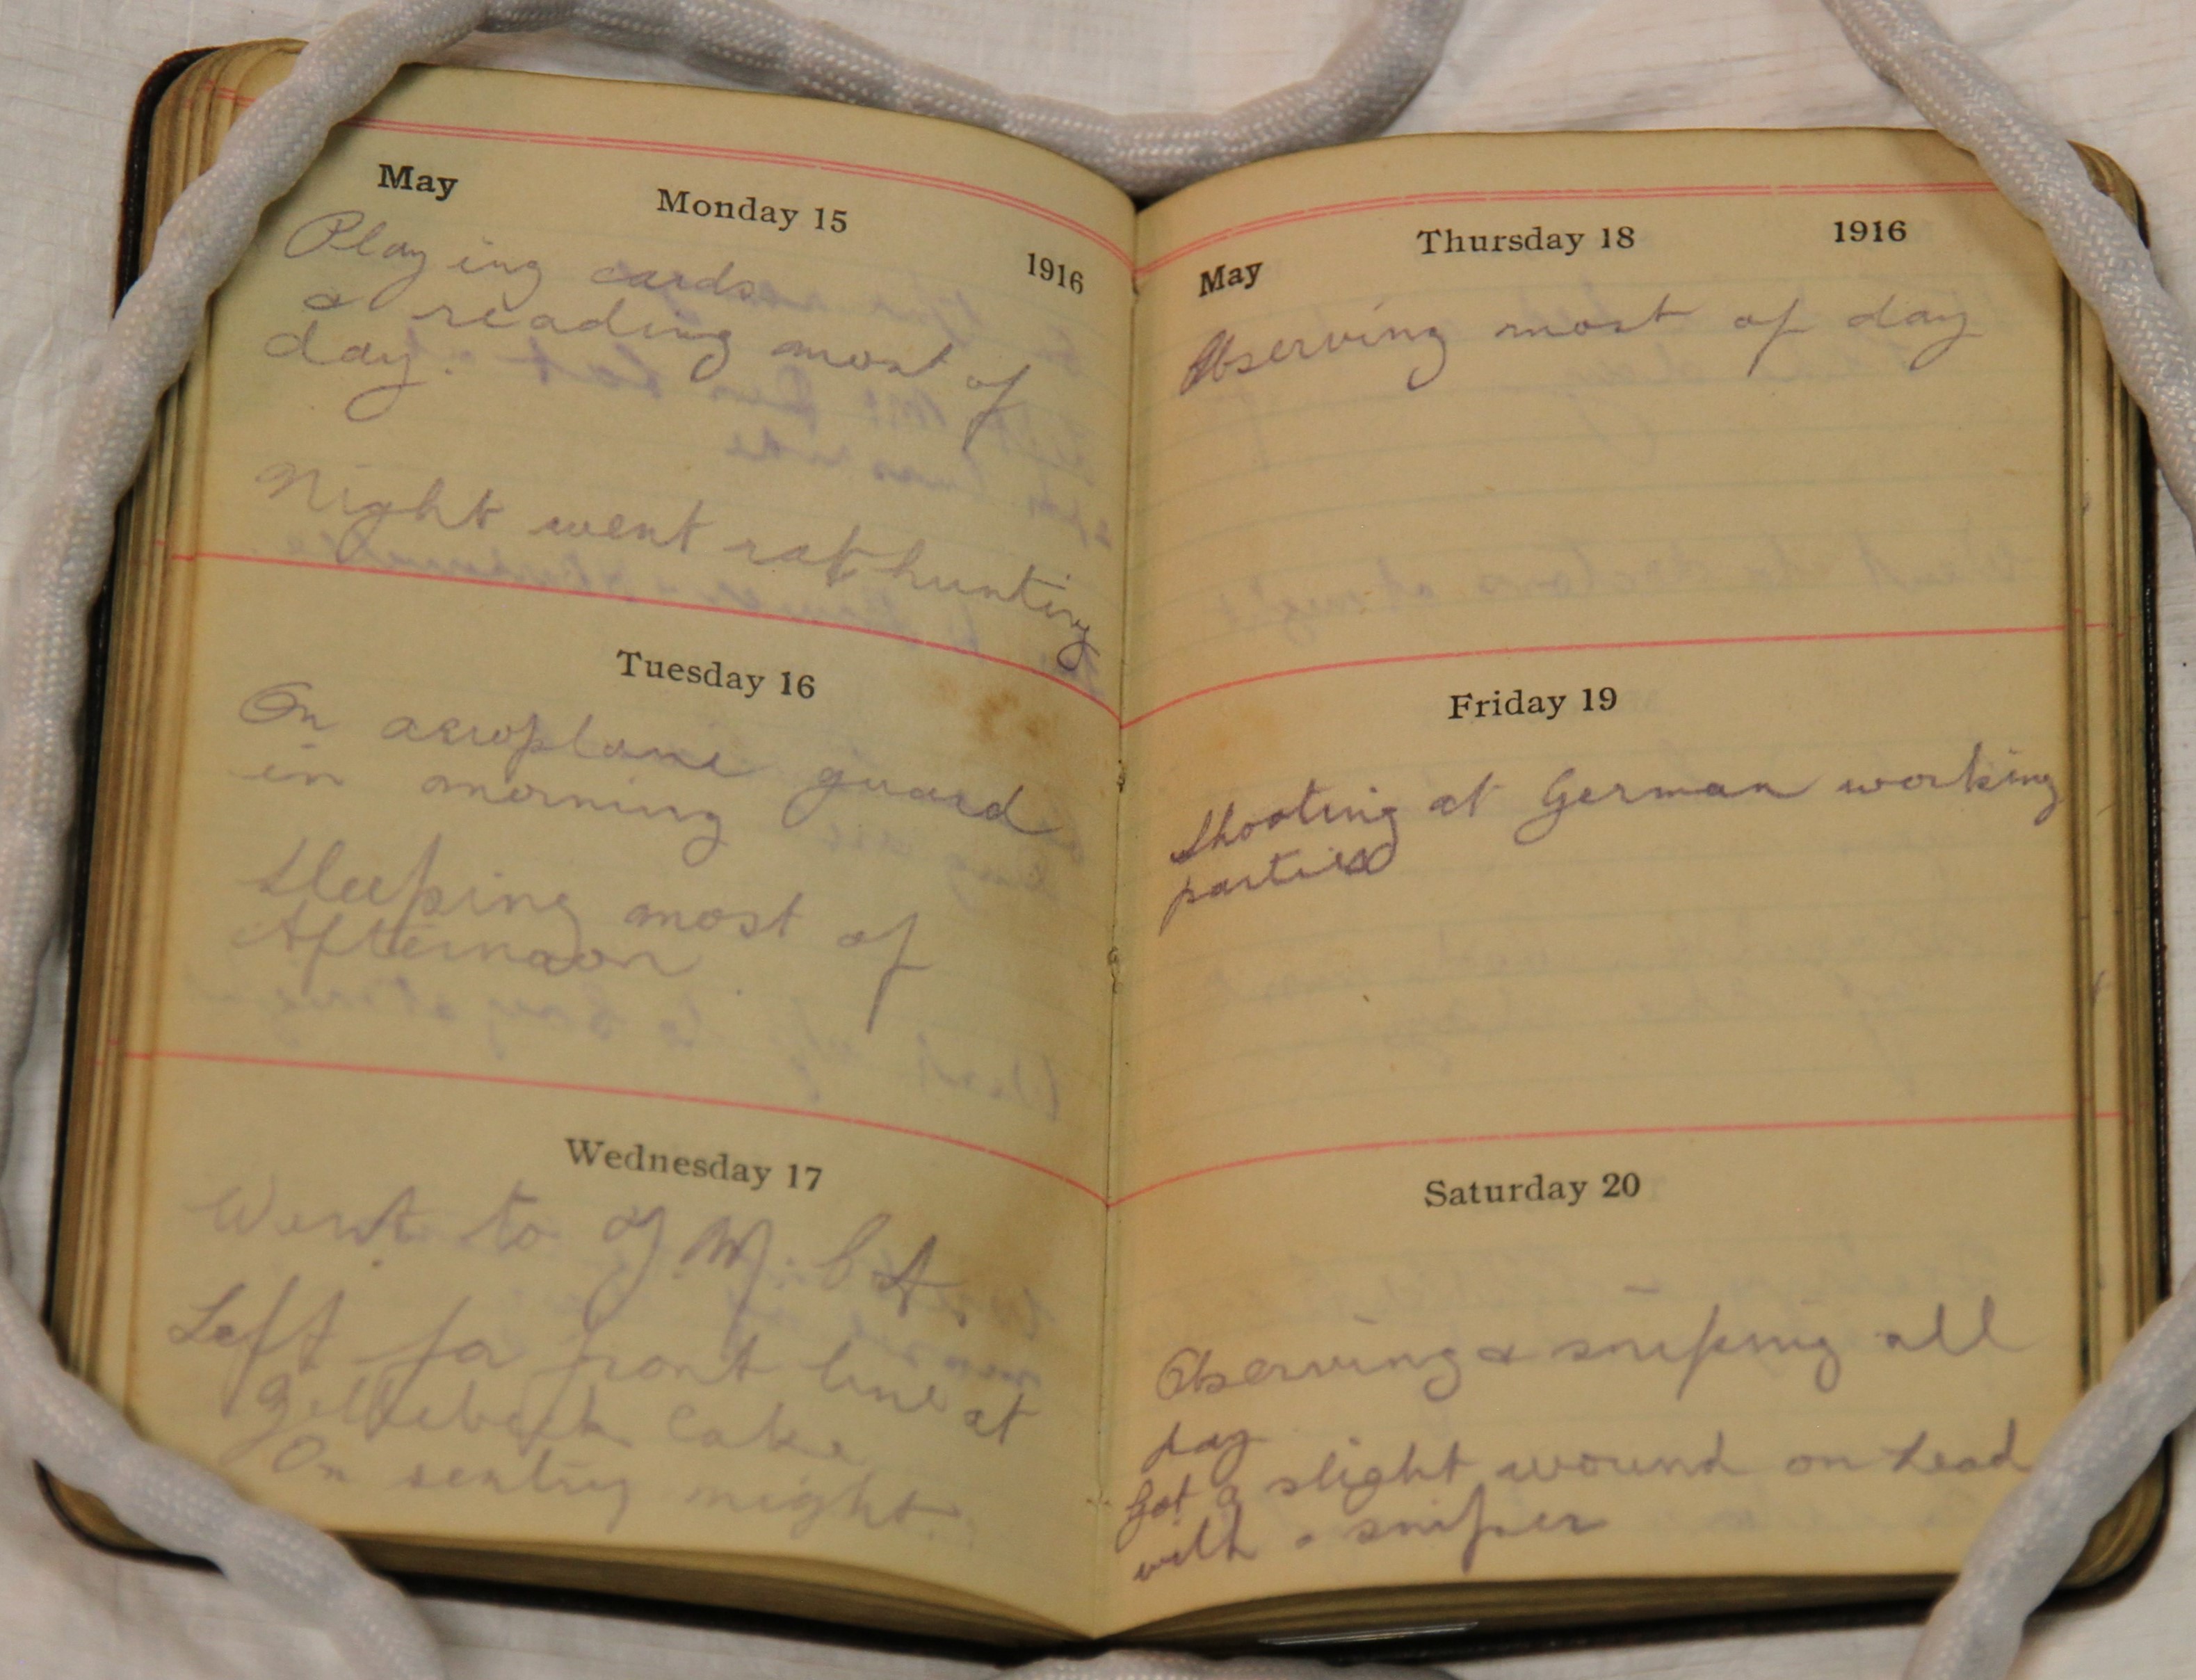 May
Monday 15
1916
Playing cards
& reading most of
day.
Night went rat hunting
Tuesday 16
On aeroplane guard
in morning
Sleeping most of
Afternoon
Wednesday 17
Went to Y.M.C.A.
Left for front line at
Zellebeck Lake
On sentry night.
May
Thursday 18
1916
Observing most of day
Friday 19
Shooting at German working
parties
Saturday 20
Observing & sniping all
day
Got a slight wound on head
with a sniper